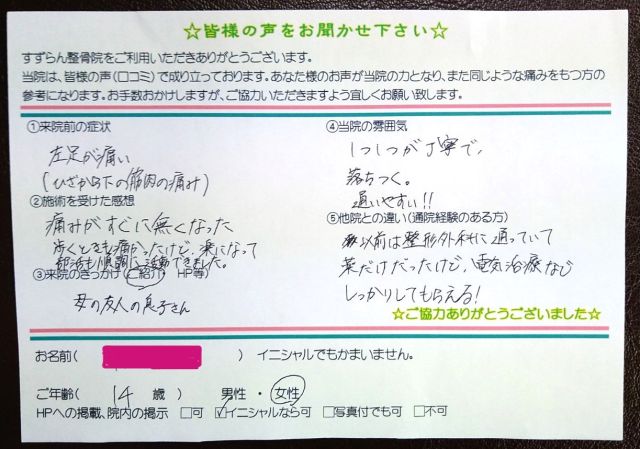 ☆皆様の声をお聞かせ下さい☆
すずらん整骨院をご利用いただきありがとうございます。
当院は、皆様の声(口コミ)で成り立っております。あなた様のお声が当院の力となり、また同じような痛みをもつ方の
参考になります。お手数おかけしますが、ご協力いただきますよう宜しくお願い致します。
①来院前の症状
左足が痛い
(ひざから下の筋肉の痛み)
②施術を受けた感想
痛みがすぐに無くなった
歩くときも痛かったけど、楽になって
部活も順調に活動できました。
③来院のきっかけ(ご紹介 HP等)
母の友人の息子さん
④当院の雰囲気
1つ1つが丁寧で、
落ちつく。
通いやすい!!
⑤他院との違い(通院経験のある方)
以前は整形外科に通っていて
薬だけだったけど、電気治療など
しっかりしてもらえる!
☆ご協力ありがとうございました☆
お名前( ) イニシャルでもかまいません。
ご年齢( 14 歳 ) 男性 ・ 女性
HPへの掲載、院内の掲示 □可 ☑イニシャルなら可 □写真付でも可 □不可